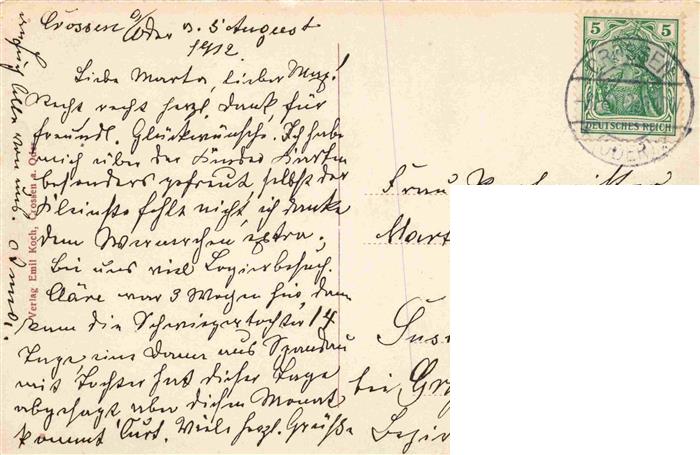 Crossen a/Oder d. 5 August
1912.
Liebe Marta, lieber Max!
Recht recht herzl. Dank für
freundl. Glückwünsche. Ich habe
mich über der Kinder Karten
besonders gefreut selbst der
Kleinste fehlt nicht, ich danke
dem extra.
Bei uns viel Logierbesuch.
Cläre war 3 Wochen hier, dann
kam die Schwiegertochter 14
Tage, eine Dame aus Spandau
mit Tochter hat dieser Tage
abgesagt aber diesen Monat
kommt Curt. Viele herzl. Grüße
Verlag Emil Koch, Crossen a. Oder
5 5
DEUTSCHES REICH
CROSSEN
(ODER)
Frau
Mart
bei